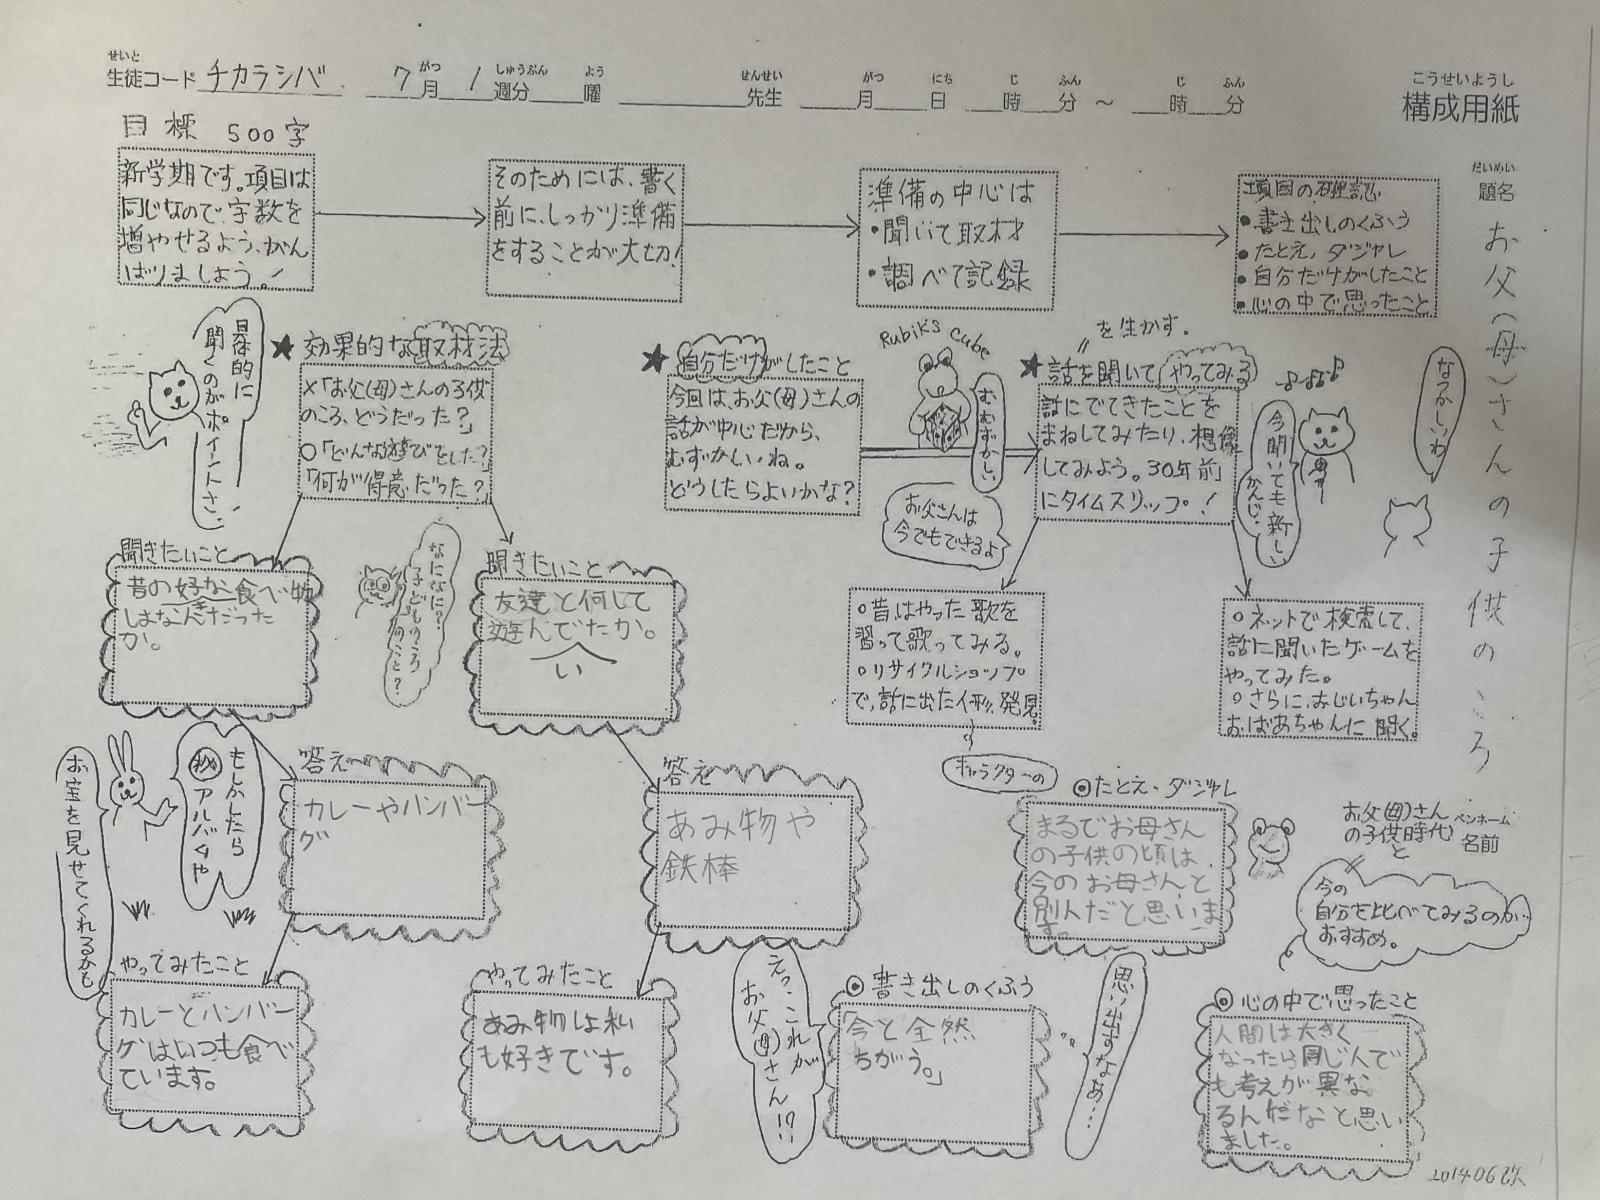 せいと
生徒コード チカラシバ 7月 1週分 曜 先生 月 日 時 分 ～ 時 分
がつ しゅうぶん よう せんせい がつ にち じ ふん じ ふん
こうせいようし
構成用紙
だいめい
題名
お父(母)さんの子供のころ
目標 500字
新学期です。項目は
同じなので、字数を
増やせるよう、がん
ばりましょう。!
そのためには、書く
前に、しっかり準備
をすることが大切!
準備の中心は
•聞いて取材
•調べて記録
項目の確認
•書き出しのくふう
•たとえ、ダジャレ
•自分だけがしたこと
•心の中で思ったこと
具体的に
聞くのがポイントさ。
★効果的な取材法
×「お父(母)さんの子供
のころ、どうだった?」
○「どんな遊びをした?」
「何が得意だった?」
★自分だけがしたこと
今回は、お父(母)さんの
話が中心だから、
むずかしいね。
どうしたらよいかな?
Rubik's Cube
むむずかしい
お父さんは
今でもできるよ
を生かす。
★話を聞いてやってみる
話にでてきたことを
まねしてみたり、想像
してみよう。30年前
にタイムスリップ!
今聞いても新しい
かんじ。
なつかしいわ
聞きたいこと
昔の好きな食べ物
はなんだった
か。
なになに?
子どものころ
のこと?
聞きたいこと
友達と何して
遊んでいたか。
○昔はやった歌を
習って歌ってみる。
○リサイクルショップ
で、話に出た人形、発見。
キャラクターの
○ネットで検索して、
話に聞いたゲームを
やってみた。
○さらに、おじいちゃん
おばあちゃんに聞く。
もしかしたら
秘アルバムや
お宝を見せてくれるかも
答え
カレーやハンバー
グ
答え
あみ物や
鉄棒
◎たとえ・ダジャレ
まるでお母さん
の子供の頃は、
今のお母さんと
別人だと思いま
す。
ペンネーム
名前
お父(母)さん
の子供時代
と
今の
自分を比べてみるのが
おすすめ。
やってみたこと
カレーとハンバー
グはいつも食べ
ています。
やってみたこと
あみ物は私
も好きです。
えっ、これが
お父(母)さん!?
◎書き出しのくふう
「今と全然
ちがう。」
思い出すなあ…
◎心の中で思ったこと
人間は大きく
なったら同じ人で
も考えが異な
るんだなと思い
ました。
201406改